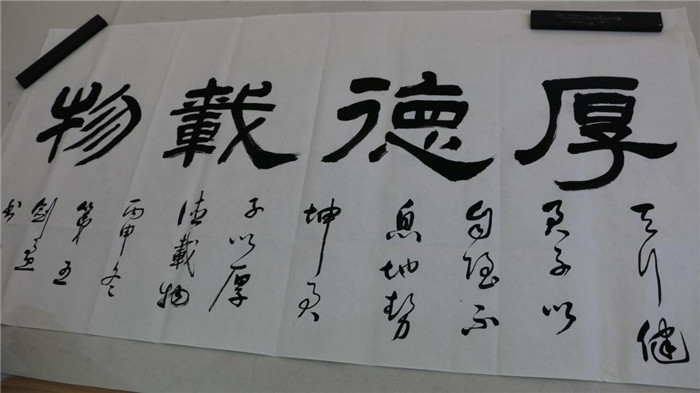 厚德載物
天行健
君子以
自强不
息地势
坤君
子以厚
德載物
丙申冬
第五
剑
书